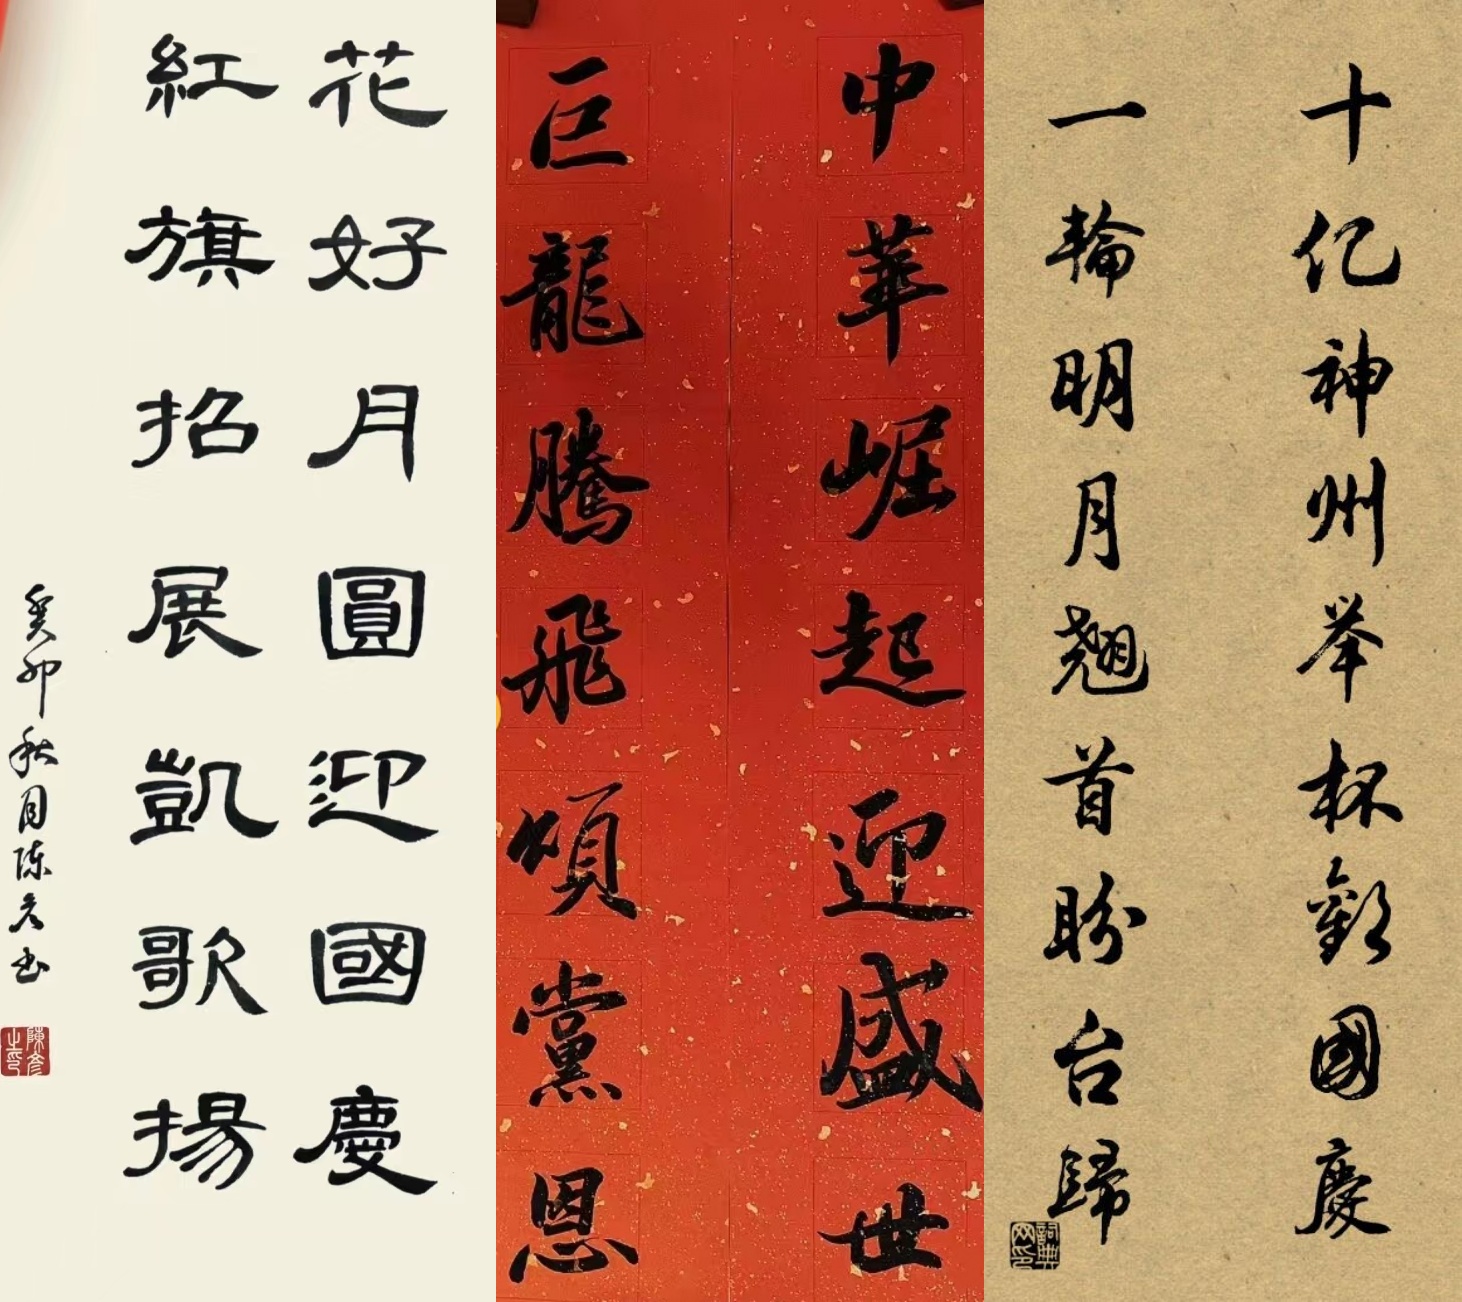 花好月圓迎國慶
紅旗招展凱歌揚
癸卯秋月陈彦书
陳彥之印
中華崛起迎盛世
巨龍騰飛頌黨恩
十亿神州举杯歡國慶
一輪明月翘首盼台歸
詞典网印